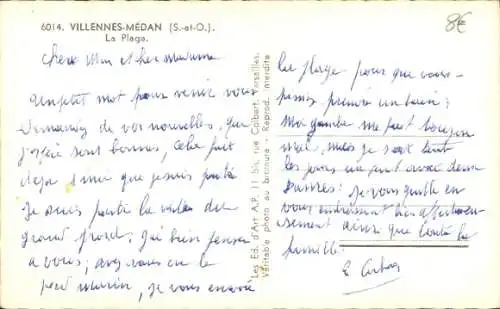 6014. VILLENNES-MÉDAN (S.-et-O.).
La Plage.
8€
Chers Mr et chère Madame
un petit mot pour venir vous
demander de vos nouvelles, que
j'espère sont bonnes, cela fait
déjà que je suis
Je suis
grand Je bien penser
a vous; avez vous eu le
pied marin, je vous envoie
Les Ed. d'Art A.P. 11 bis, rue Colbert, Versailles.
Véritable photo au bromure - Reprod. interdite
la plage pour que vous
prendre un bain;
Ma jambe me fait toujours
mal, mais je sors tout
les jours un peu avec deux
cannes. Je vous quitte en
vous embrassant bien affectueu-
sement ainsi que toute la
famille.